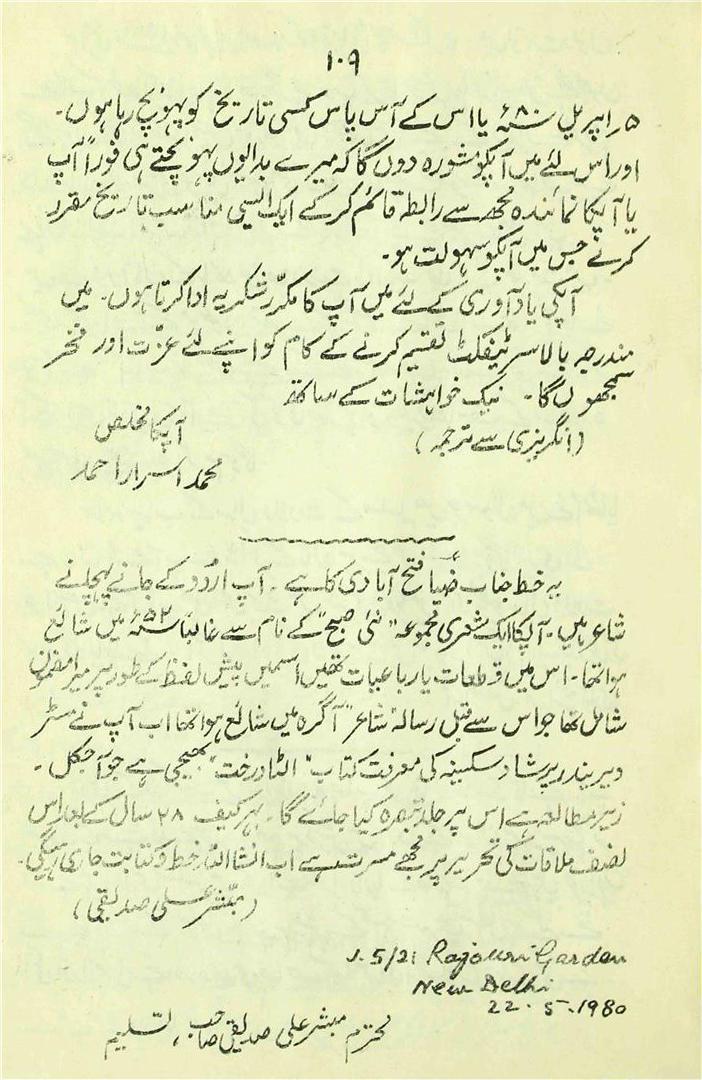 ۱۰۹
۵ راپریل ۸۰ء یا اس کے آس پاس کسی تاریخ کو پہونچ رہا ہوں۔
اور اس لئے میں آپکو مشورہ دوں گا کہ میرے بدایوں پہونچتے ہی فوراً آپ
یا آپکا نمائندہ مجھ سے رابطہ قائم کر کے ایک ایسی مناسب تاریخ مقرر
کرے جس میں آپکو سہولت ہو۔
آپکی یاد آوری کے لئے میں آپ کا مکرّر شکریہ ادا کرتا ہوں۔ میں
مندرجہ بالا سرٹیفکٹ تقسیم کرنے کے کام کو اپنے لئے عزّت اور فخر
سمجھوں گا۔ نیک خواہشات کے ساتھ
آپکا مخلص
(انگریزی سے ترجمہ)
محمد اسرار احمد
یہ خط جناب ضیاؔ فتح آبادی کا ہے۔ آپ اردو کے جانے پہچانے
شاعر ہیں۔ آپکا ایک شعری مجموعہ "نئی صبح" کے نام سے غالباً ۵۲ء میں شائع
ہوا تھا۔ اس میں قطعات یا رباعیات تھیں اسمیں پیش لفظ کے طور پر میرا مضمون
شامل تھا جو اس سے قبل رسالہ "شاعر" آگرہ میں شائع ہوا تھا اب آپ نے مسٹر
ویریندر پرشاد سکسینہ کی معرفت کتاب "الٹا درخت" بھیجی ہے جو آجکل۔
زیر مطالعہ ہے اس پر جلد تبصرہ کیا جائے گا۔ بہر کیف ۲۸ سال کے بعد اس
نصف ملاقات کی تحریر پر مجھے مسرت ہے اب انشااللہ خط و کتابت جاری رہیگی۔
(مبشر علی صدیقی)
J. 5/21 Rajouri Garden
New Delhi
22. 5. 1980
محترم مبشر علی صدیقی صاحب، تسلیم